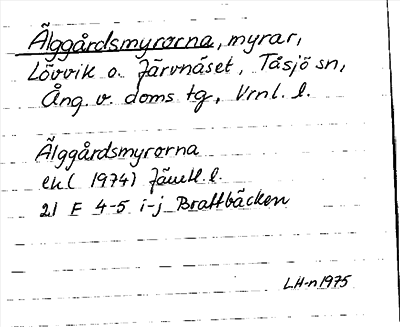 Älggårdsmyrorna, myrar,
Lövvik o. Järvnäset, Tåsjö sn,
Ång. v. doms tg, Vrnl. l.
Älggårdsmyrorna
ek ( 1974) Jämtl. l.
21 E 4-5 i-j Brattbäcken
LH-n 1975